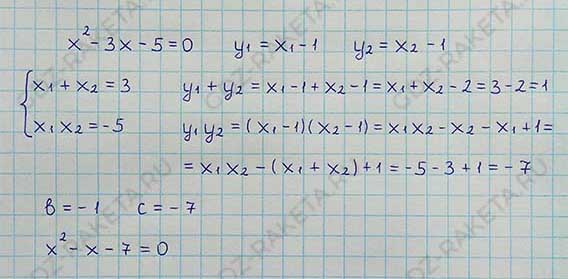 x² - 3x - 5 = 0 y₁ = x₁ - 1 y₂ = x₂ - 1
x₁ + x₂ = 3 y₁ + y₂ = x₁ - 1 + x₂ - 1 = x₁ + x₂ - 2 = 3 - 2 = 1
x₁ x₂ = -5 y₁ y₂ = (x₁ - 1)(x₂ - 1) = x₁ x₂ - x₂ - x₁ + 1 =
= x₁ x₂ - (x₁ + x₂) + 1 = -5 - 3 + 1 = -7
b = -1 c = -7
x² - x - 7 = 0
GDZ-RAKETA.RU